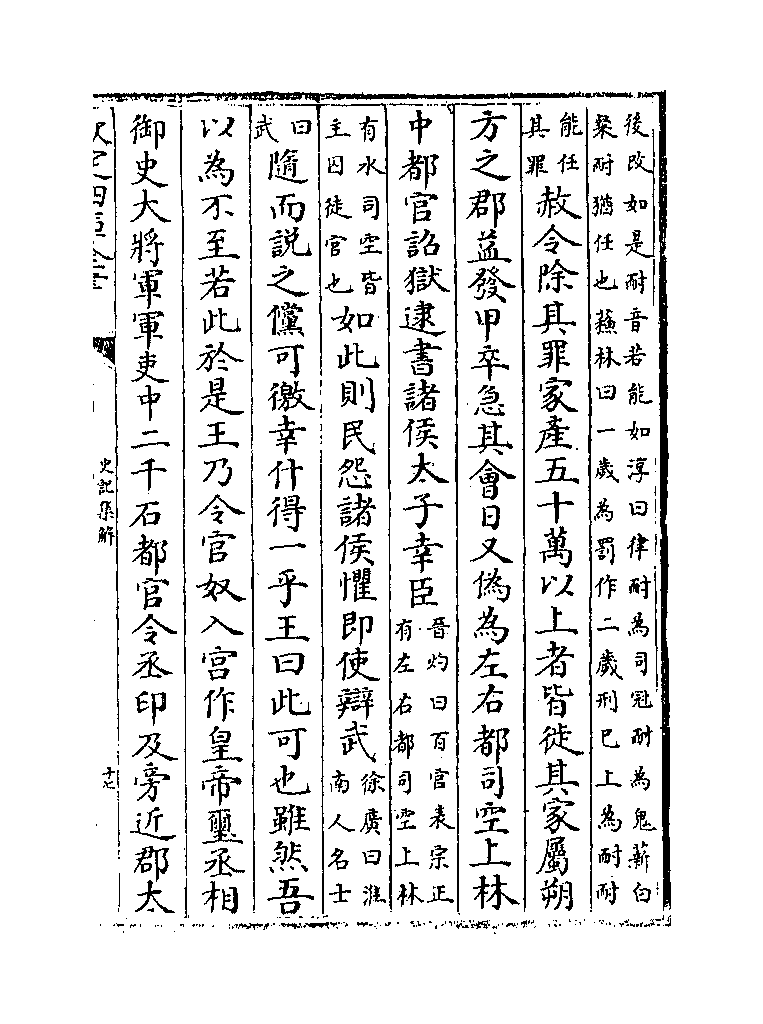 後改如是耐音若能如淳曰律耐為司冦耐為鬼薪白
粲耐猶任也蘓林曰一歲為罰作二歲刑已上為耐耐
能任
其罪
赦令除其罪家產五十萬以上者皆徙其家屬朔
方之郡益發甲卒急其會日又偽為左右都司空上林
中都官詔獄逮書諸侯太子幸臣
晉灼曰百官表宗正
有左右都司空上林
有水司空皆
主囚徒官也
如此則民怨諸侯懼即使辯武
徐廣曰淮
南人名士
曰
武
隨而説之儻可徼幸什得一乎王曰此可也雖然吾
以為不至若此於是王乃令官奴入宮作皇帝璽丞相
御史大將軍軍吏中二千石都官令丞印及旁近郡太
欽定四庫全書
史記集解
十七